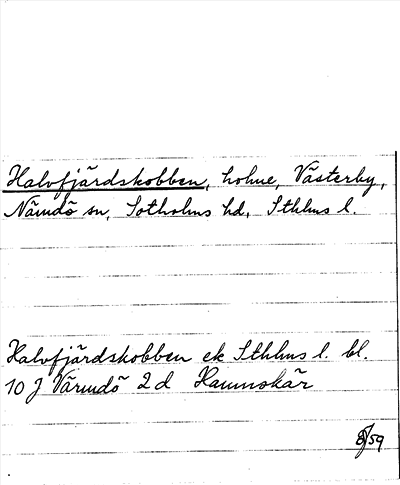 Halvfjärdskobben, holme, Västerby,
Nämdö sn, Sotholms hd, Sthlms l.
Halvfjärdskobben ek Sthlms l. bl.
10 J Värmdö 2 d Hamnskär
8/59